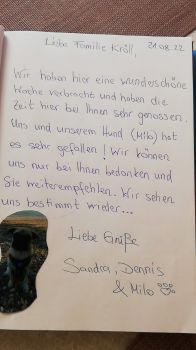 Liebe Familie Kröll, 21.08.22
Wir haben hier eine wunderschöne
Woche verbracht und haben die
Zeit hier bei Ihnen sehr genossen.
Uns und unserem Hund (Milo) hat
es sehr gefallen! Wir können
uns nur bei Ihnen bedanken und
Sie weiterempfehlen. Wir sehen
uns bestimmt wieder...
Liebe Grüße
Sandra, Dennis
& Milo